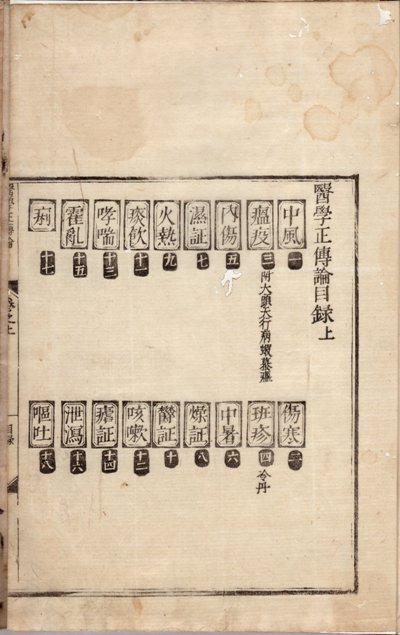 醫學正傳論目録 上
中風 一 傷寒 二
瘟疫 三 附大頭天行病蝦蟇瘟 班疹 四 冷丹
內傷 五 中暑 六
濕証 七 燥証 八
火熱 九 欝証 十
痰飮 十一 咳嗽 十二
哮喘 十三 瘧証 十四
霍亂 十五 泄瀉 十六
痢 十七 嘔吐 十八
卷之上
目録